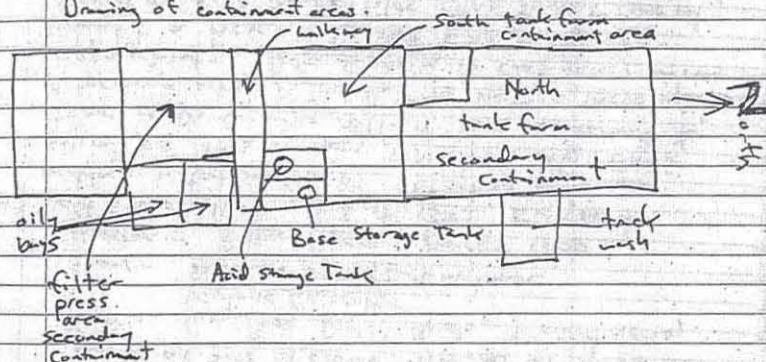 Drawing of containment areas.
walkway
South tank farm
containment area
North
tank farm
secondary
containment
oily
bays
Base Storage Tank
truck
wash
Acid Storage Tank
filter
press
area
secondary
containment